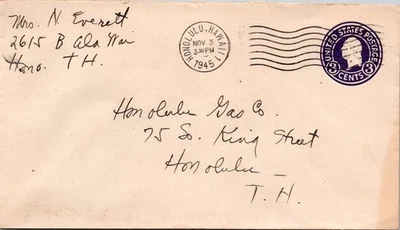 Mrs. N. Everett
2615 B Ala Wai
Hono. T.H.
HONOLULU, HAWAII 1
NOV 3
330 PM
1945
UNITED STATES POSTAGE
3 CENTS 3
Honolulu Gas Co.
75 So. King Street
Honolulu —
T.H.